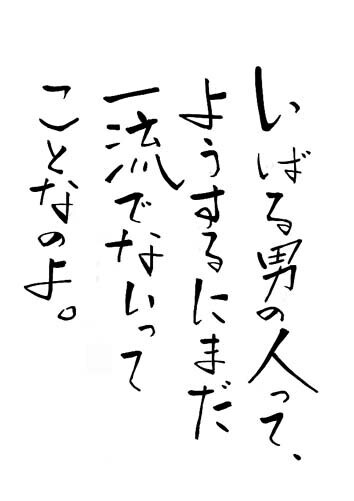 いばる男の人って、
ようするにまだ
一流でないって
ことなのよ。